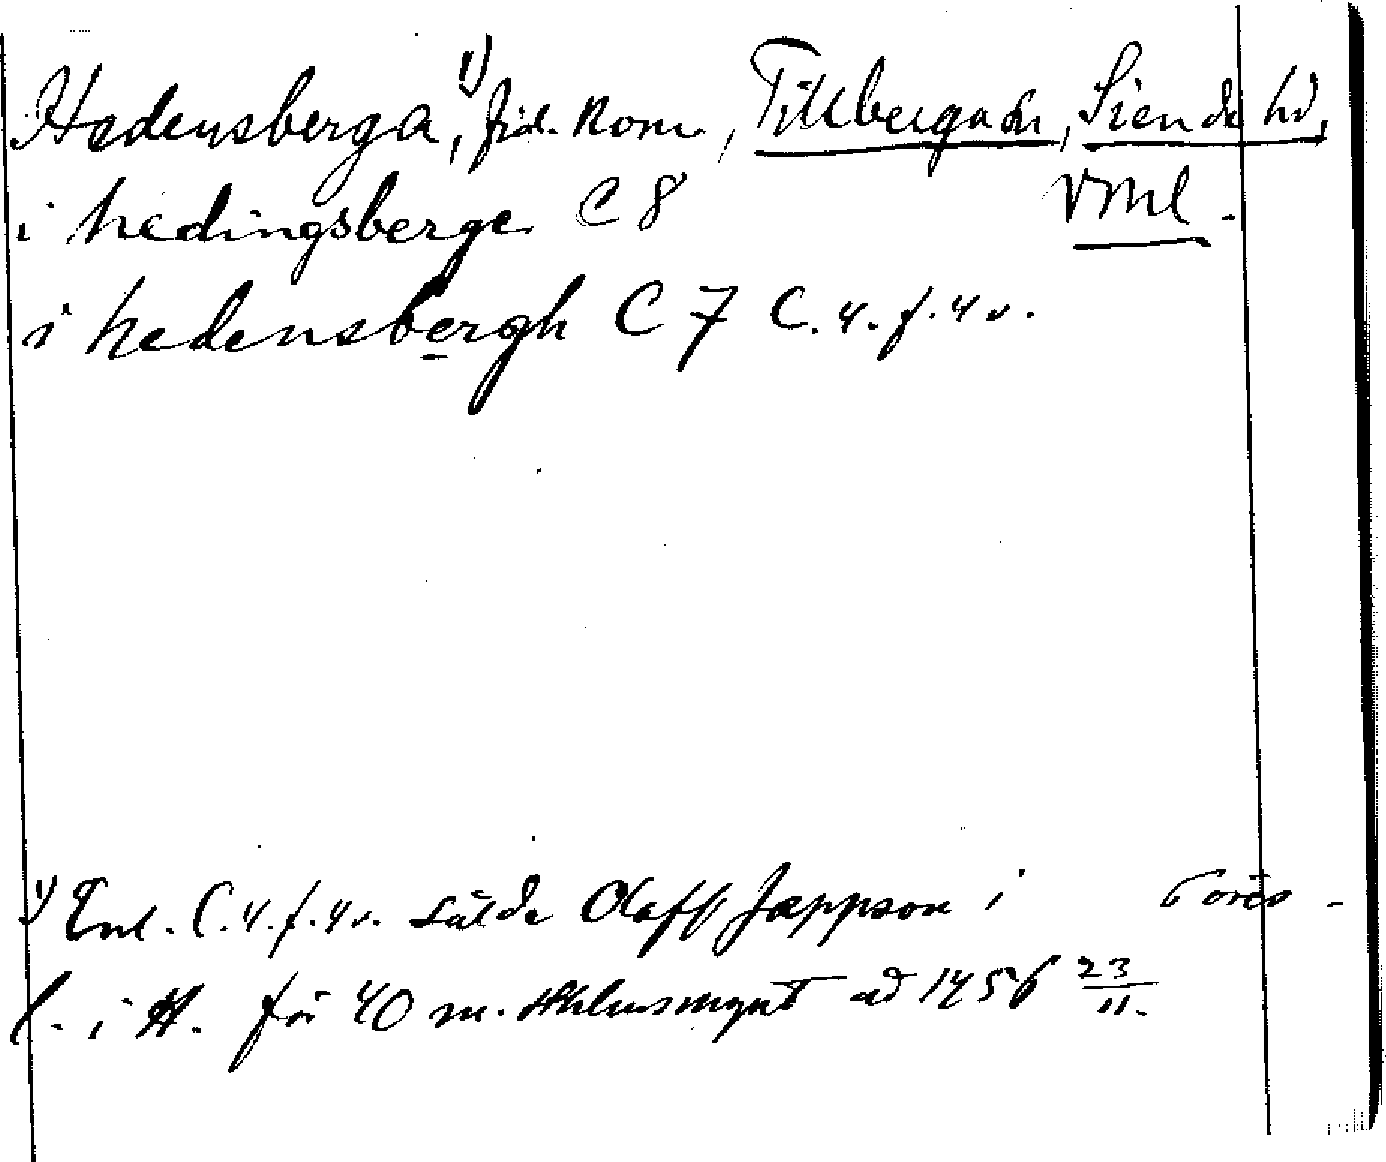 Hedensberga,¹⁾ fid. Kom., Tillberga sn, Siende hd,
i hedingsberge C 8 Vml.
i hedensbergh C 7 C. 4. f. 4 v.
¹⁾ Enl. C. 4. f. 4 v. sålde Olaff Jæppson i
l. i H. för 40 m. mynt ad 1456 23/11.